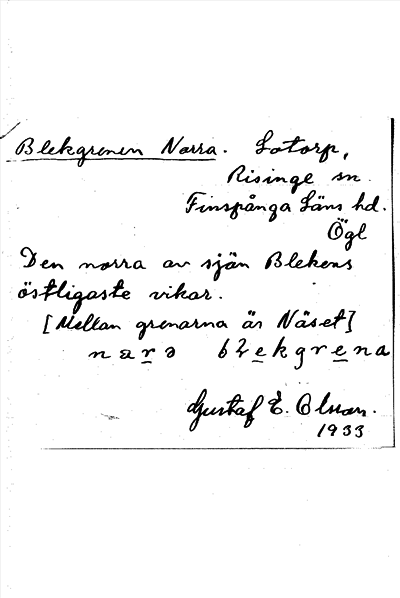 Blekgrenen Norra. Lotorp,
Risinge sn.
Finspånga Läns hd.
Ögl
Den norra av sjön Blekens
östligaste vikar.
[Mellan grenarna är Näset]
narə blekgrena
Gustaf E. Olsson.
1933